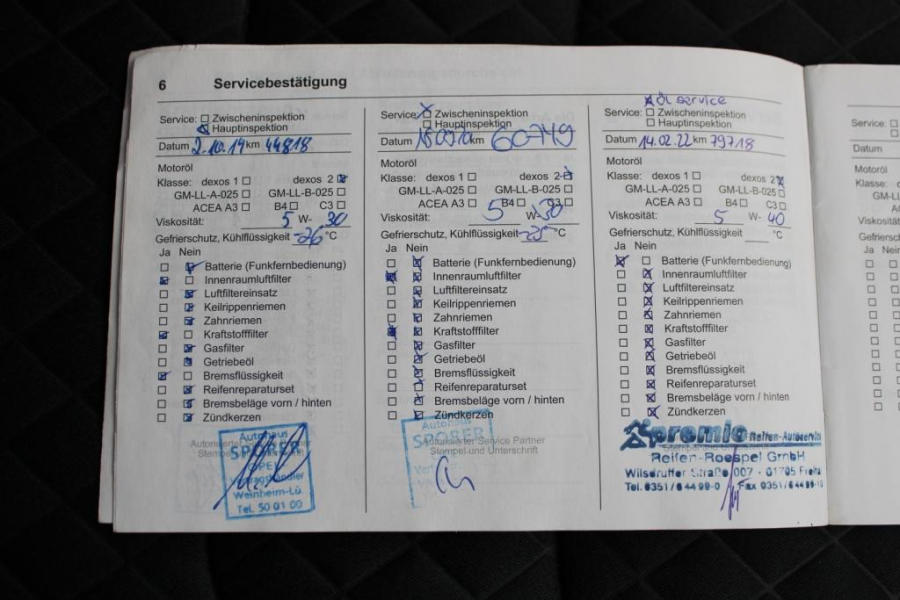 6 Servicebestätigung
Service: Zwischeninspektion
Hauptinspektion
Datum 2.10.14 km 44818
Motoröl
Klasse: dexos 1 dexos 2
GM-LL-A-025 GM-LL-B-025
ACEA A3 B4 C3
Viskosität: 5 W- 30
Gefrierschutz, Kühlflüssigkeit -26 °C
Ja Nein
Batterie (Funkfernbedienung)
Innenraumluftfilter
Luftfiltereinsatz
Keilrippenriemen
Zahnriemen
Kraftstofffilter
Gasfilter
Getriebeöl
Bremsflüssigkeit
Reifenreparaturset
Bremsbeläge vorn / hinten
Zündkerzen
Autohaus
SPÖRER
OPEL
Weinheim-Lü.
Tel. 50 01 00
Service: Zwischeninspektion
Hauptinspektion
Datum km 60749
Motoröl
Klasse: dexos 1 dexos 2
GM-LL-A-025 GM-LL-B-025
ACEA A3 B4 C3
Viskosität: 5 W- 30
Gefrierschutz, Kühlflüssigkeit -25 °C
Ja Nein
Batterie (Funkfernbedienung)
Innenraumluftfilter
Luftfiltereinsatz
Keilrippenriemen
Zahnriemen
Kraftstofffilter
Gasfilter
Getriebeöl
Bremsflüssigkeit
Reifenreparaturset
Bremsbeläge vorn / hinten
Zündkerzen
Autohaus
SPÖRER
Autorisierter Service Partner
Stempel und Unterschrift
Öl service
Service: Zwischeninspektion
Hauptinspektion
Datum 14.02.22 km 79718
Motoröl
Klasse: dexos 1 dexos 2
GM-LL-A-025 GM-LL-B-025
ACEA A3 B4 C3
Viskosität: 5 W- 40
Gefrierschutz, Kühlflüssigkeit °C
Ja Nein
Batterie (Funkfernbedienung)
Innenraumluftfilter
Luftfiltereinsatz
Keilrippenriemen
Zahnriemen
Kraftstofffilter
Gasfilter
Getriebeöl
Bremsflüssigkeit
Reifenreparaturset
Bremsbeläge vorn / hinten
Zündkerzen
premio Reifen-Autoservice
Reifen-Roespel GmbH
Wilsdruffer Straße 007 - 01705
Tel. 0351/6 44 99-0 Fax 0351/6 44 99-
Service:
Datum
Motoröl
Klasse:
GM-LL
Viskosität
Ja Nein